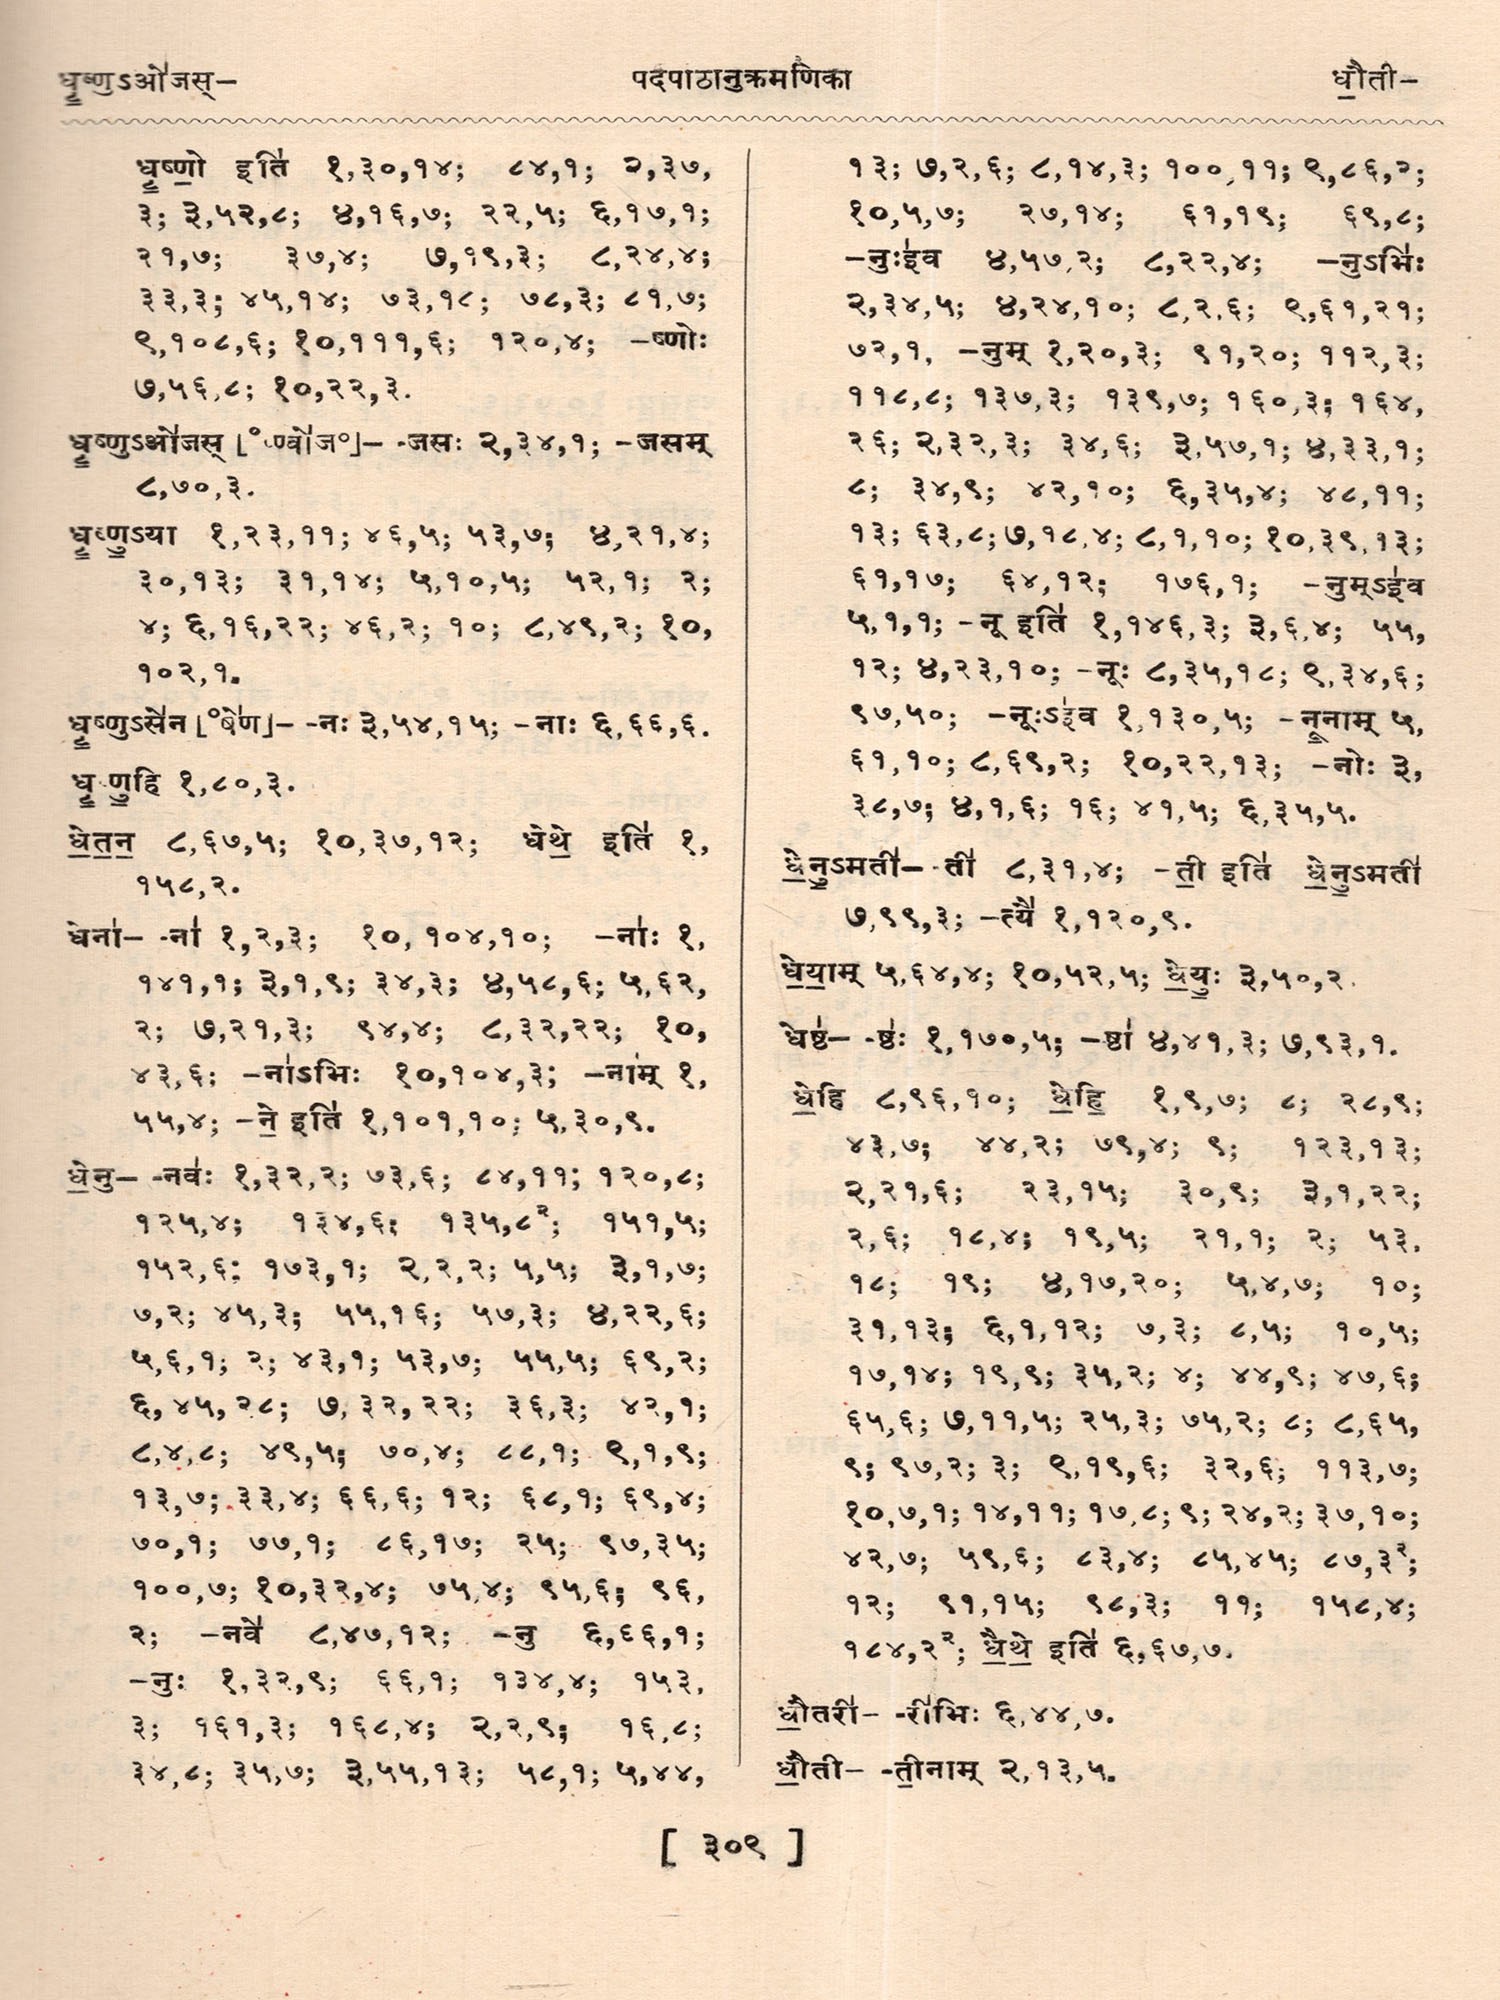 धृ॒ष्णुऽओ॑जस्–
पदपाठानुक्रमणिका
धौ॒ती–
धृ॒ष्णो॒ इति॑ १,३०,१४; ८४,१; २,३७,
३; ३,५२,८; ४,१६,७; २२,५; ६,१७,१;
२१,७; ३७,४; ७,१९,३; ८,२४,४;
३३,३; ४५,१४; ७३,१८; ७८,३; ८१,७;
९,१०८,६; १०,१११,६; १२०,४; –ष्णोः
७,५६,८; १०,२२,३.
धृ॒ष्णुऽओ॑जस् [°ष्ण्वो॑ज°]– -जसः २,३४,१; -जसम्
८,७०,३.
धृ॒ष्णु॒ऽया १,२३,११; ४६,५; ५३,७; ४,२१,४;
३०,१३; ३१,१४; ५,१०,५; ५२,१; २;
४; ६,१६,२२; ४६,२; १०; ८,४९,२; १०,
१०२,१.
धृ॒ष्णुऽसे॑न [°षे॑ण]– -नः ३,५४,१५; -नाः ६,६६,६.
धृ॒ष्णु॒हि १,८०,३.
धे॒त॒न॒ ८,६७,५; १०,३७,१२; धेथे॒ इति॑ १,
१५८,२.
धेना॑– -ना॑ १,२,३; १०,१०४,१०; –ना॑ः १,
१४१,१; ३,१,९; ३४,३; ४,५८,६; ५,६२,
२; ७,२१,३; ९४,४; ८,३२,२२; १०,
४३,६; –ना॑ऽभिः १०,१०४,३; –ना॑म् १,
५५,४; –ने॒ इति॑ १,१०१,१०; ५,३०,९.
धे॒नु– -नवः॑ १,३२,२; ७३,६; ८४,११; १२०,८;
१२५,४; १३४,६; १३५,८²; १५१,५;
१५२,६; १७३,१; २,२,२; ५,५; ३,१,७;
७,२; ४५,३; ५५,१६; ५७,३; ४,२२,६;
५,६,१; २; ४३,१; ५३,७; ५५,५; ६९,२;
६,४५,२८; ७,३२,२२; ३६,३; ४२,१;
८,४,८; ४९,५; ७०,४; ८८,१; ९,१,९;
१३,७; ३३,४; ६६,६; १२; ६८,१; ६९,४;
७०,१; ७७,१; ८६,१७; २५; ९७,३५;
१००,७; १०,३२,४; ७५,४; ९५,६; ९६,
२; –नवे॑ ८,४७,१२; –नु ६,६६,१;
–नुः १,३२,९; ६६,१; १३४,४; १५३,
३; १६१,३; १६८,४; २,२,९; १६,८;
३४,८; ३५,७; ३,५५,१३; ५८,१; ५,४४,
१३; ७,२,६; ८,१४,३; १००,११; ९,८६,२;
१०,५,७; २७,१४; ६१,१९; ६९,८;
–नुःइ॑व ४,५७,२; ८,२२,४; –नुऽभिः॑
२,३४,५; ४,२४,१०; ८,२,६; ९,६१,२१;
७२,१, –नुम् १,२०,३; ९१,२०; ११२,३;
११८,८; १३७,३; १३९,७; १६०,३; १६४,
२६; २,३२,३; ३४,६; ३,५७,१; ४,३३,१;
८; ३४,९; ४२,१०; ६,३५,४; ४८,११;
१३; ६३,८; ७,१८,४; ८,१,१०; १०,३९,१३;
६१,१७; ६४,१२; १७६,१; –नुम्ऽइ॑व
५,१,१; –नू इति॑ १,१४६,३; ३,६,४; ५५,
१२; ४,२३,१०; –नूः ८,३५,१८; ९,३४,६;
९७,५०; –नूःऽइ॑व १,१३०,५; –नू॒नाम् ५,
६१,१०; ८,६९,२; १०,२२,१३; –नोः ३,
३८,७; ४,१,६; १६; ४१,५; ६,३५,५.
धे॒नु॒ऽमती॑– -ती॑ ८,३१,४; -ती॒ इति॑ धे॒नु॒ऽमती॑
७,९९,३; –त्यै॑ १,१२०,९.
धे॒या॒म् ५,६४,४; १०,५२,५; धे॒युः॒ ३,५०,२.
धेष्ठ॑– -ष्ठः॑ १,१७०,५; –ष्ठा॑ ४,४१,३; ७,९३,१.
धे॒हि ८,९६,१०; धे॒हि॒ १,९,७; ८; २८,९;
४३,७; ४४,२; ७९,४; ९; १२३,१३;
२,२१,६; २३,१५; ३०,९; ३,१,२२;
२,६; १८,४; १९,५; २१,१; २; ५३,
१८; १९; ४,१७,२०; ५,४,७; १०;
३१,१३; ६,१,१२; ७,३; ८,५; १०,५;
१७,१४; १९,९; ३५,२; ४; ४४,९; ४७,६;
६५,६; ७,११,५; २५,३; ७५,२; ८; ८,६५,
९; ९७,२; ३; ९,१९,६; ३२,६; ११३,७;
१०,७,१; १४,११; १७,८; ९; २४,२; ३७,१०;
४२,७; ५९,६; ८३,४; ८५,४५; ८७,३²;
१२; ९१,१५; ९८,३; ११; १५८,४;
१८४,२²; धै॒थे॒ इति॑ ६,६७,७.
धौ॒तरी॑– -री॑भिः ६,४४,७.
धौ॒ती– -ती॒नाम् २,१३,५.
[ ३०९ ]